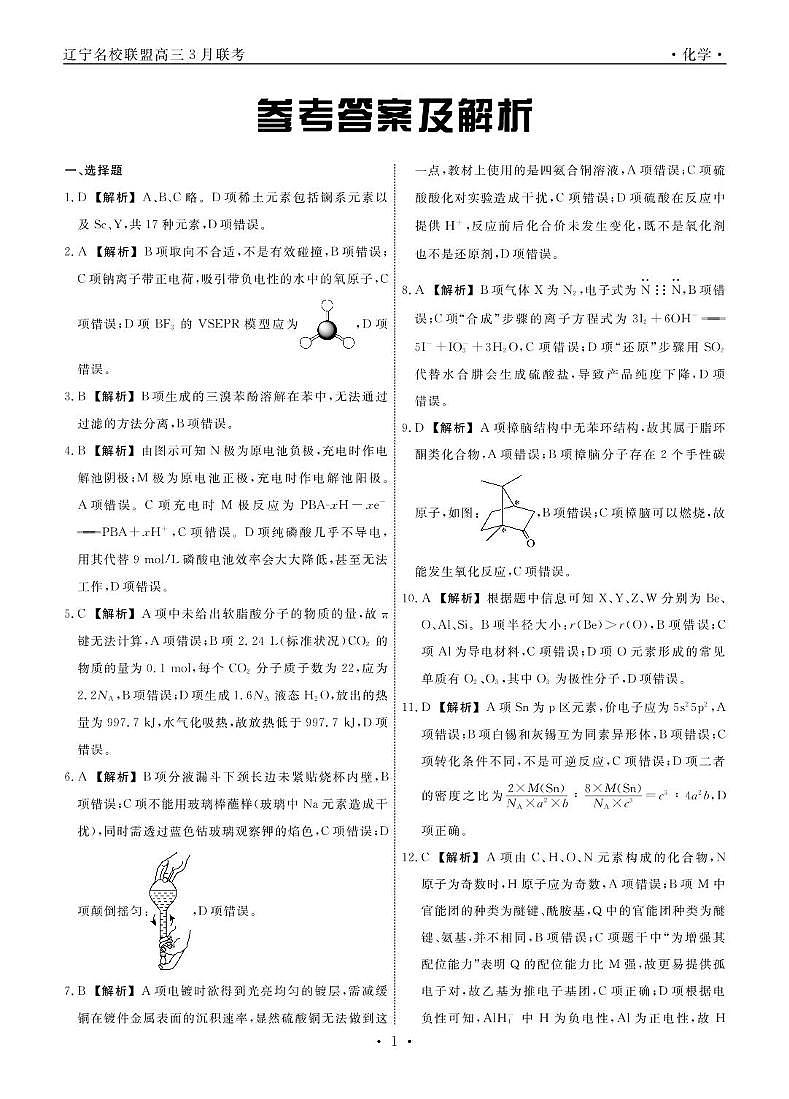 辽宁名校联盟高三3月联考
·化学·
参考答案及解析
一、选择题
1. D 【解析】A、B、C略。D项稀土元素包括镧系元素以
及Sc、Y,共17种元素,D项错误。
2. A 【解析】B项取向不合适,不是有效碰撞,B项错误;
C项钠离子带正电荷,吸引带负电性的水中的氧原子,C
项错误;D项BF₃的VSEPR模型应为 ,D项
错误。
3. B 【解析】B项生成的三溴苯酚溶解在苯中,无法通过
过滤的方法分离,B项错误。
4. B 【解析】由图示可知N极为原电池负极,充电时作电
解池阴极;M极为原电池正极,充电时作电解池阳极。
A项错误。C项充电时M极反应为PBA-xH-xe⁻
══PBA+xH⁺,C项错误。D项纯磷酸几乎不导电,
用其代替9 mol/L磷酸电池效率会大大降低,甚至无法
工作,D项错误。
5. C 【解析】A项中未给出软脂酸分子的物质的量,故π
键无法计算,A项错误;B项2.24 L(标准状况)CO₂的
物质的量为0.1 mol,每个CO₂分子质子数为22,应为
2.2Nₐ,B项错误;D项生成1.6Nₐ液态H₂O,放出的热
量为997.7 kJ,水气化吸热,故放热低于997.7 kJ,D项
错误。
6. A 【解析】B项分液漏斗下颈长边未紧贴烧杯内壁,B
项错误;C项不能用玻璃棒蘸样(玻璃中Na元素造成干
扰),同时需透过蓝色钴玻璃观察钾的焰色,C项错误;D
项颠倒摇匀: ,D项错误。
7. B 【解析】A项电镀时欲得到光亮均匀的镀层,需减缓
铜在镀件金属表面的沉积速率,显然硫酸铜无法做到这
一点,教材上使用的是四氨合铜溶液,A项错误;C项硫
酸酸化对实验造成干扰,C项错误;D项硫酸在反应中
提供H⁺,反应前后化合价未发生变化,既不是氧化剂
也不是还原剂,D项错误。
8. A 【解析】B项气体X为N₂,电子式为N̈⋮⋮N̈,B项错
误;C项“合成”步骤的离子方程式为3I₂+6OH⁻══
5I⁻+IO₃⁻+3H₂O,C项错误;D项“还原”步骤用SO₂
代替水合肼会生成硫酸盐,导致产品纯度下降,D项
错误。
9. D 【解析】A项樟脑结构中无苯环结构,故其属于脂环
酮类化合物,A项错误;B项樟脑分子存在2个手性碳
原子,如图: * * O ,B项错误;C项樟脑可以燃烧,故
能发生氧化反应,C项错误。
10. A 【解析】根据题中信息可知X、Y、Z、W分别为Be、
O、Al、Si。B项半径大小:r(Be)>r(O),B项错误;C
项Al为导电材料,C项错误;D项O元素形成的常见
单质有O₂、O₃,其中O₃为极性分子,D项错误。
11. D 【解析】A项Sn为p区元素,价电子应为5s²5p²,A
项错误;B项白锡和灰锡互为同素异形体,B项错误;C
项转化条件不同,不是可逆反应,C项错误;D项二者
的密度之比为 2×M(Sn)/(Nₐ×a²×b) : 8×M(Sn)/(Nₐ×c³) =c³:4a²b,D
项正确。
12. C 【解析】A项由C、H、O、N元素构成的化合物,N
原子为奇数时,H原子应为奇数,A项错误;B项M中
官能团的种类为醚键、酰胺基,Q中的官能团种类为醚
键、氨基,并不相同,B项错误;C项题干中“为增强其
配位能力”表明Q的配位能力比M强,故更易提供孤
电子对,故乙基为推电子基团,C项正确;D项根据电
负性可知,AlH₄⁻中H为负电性,Al为正电性,故H
·1·